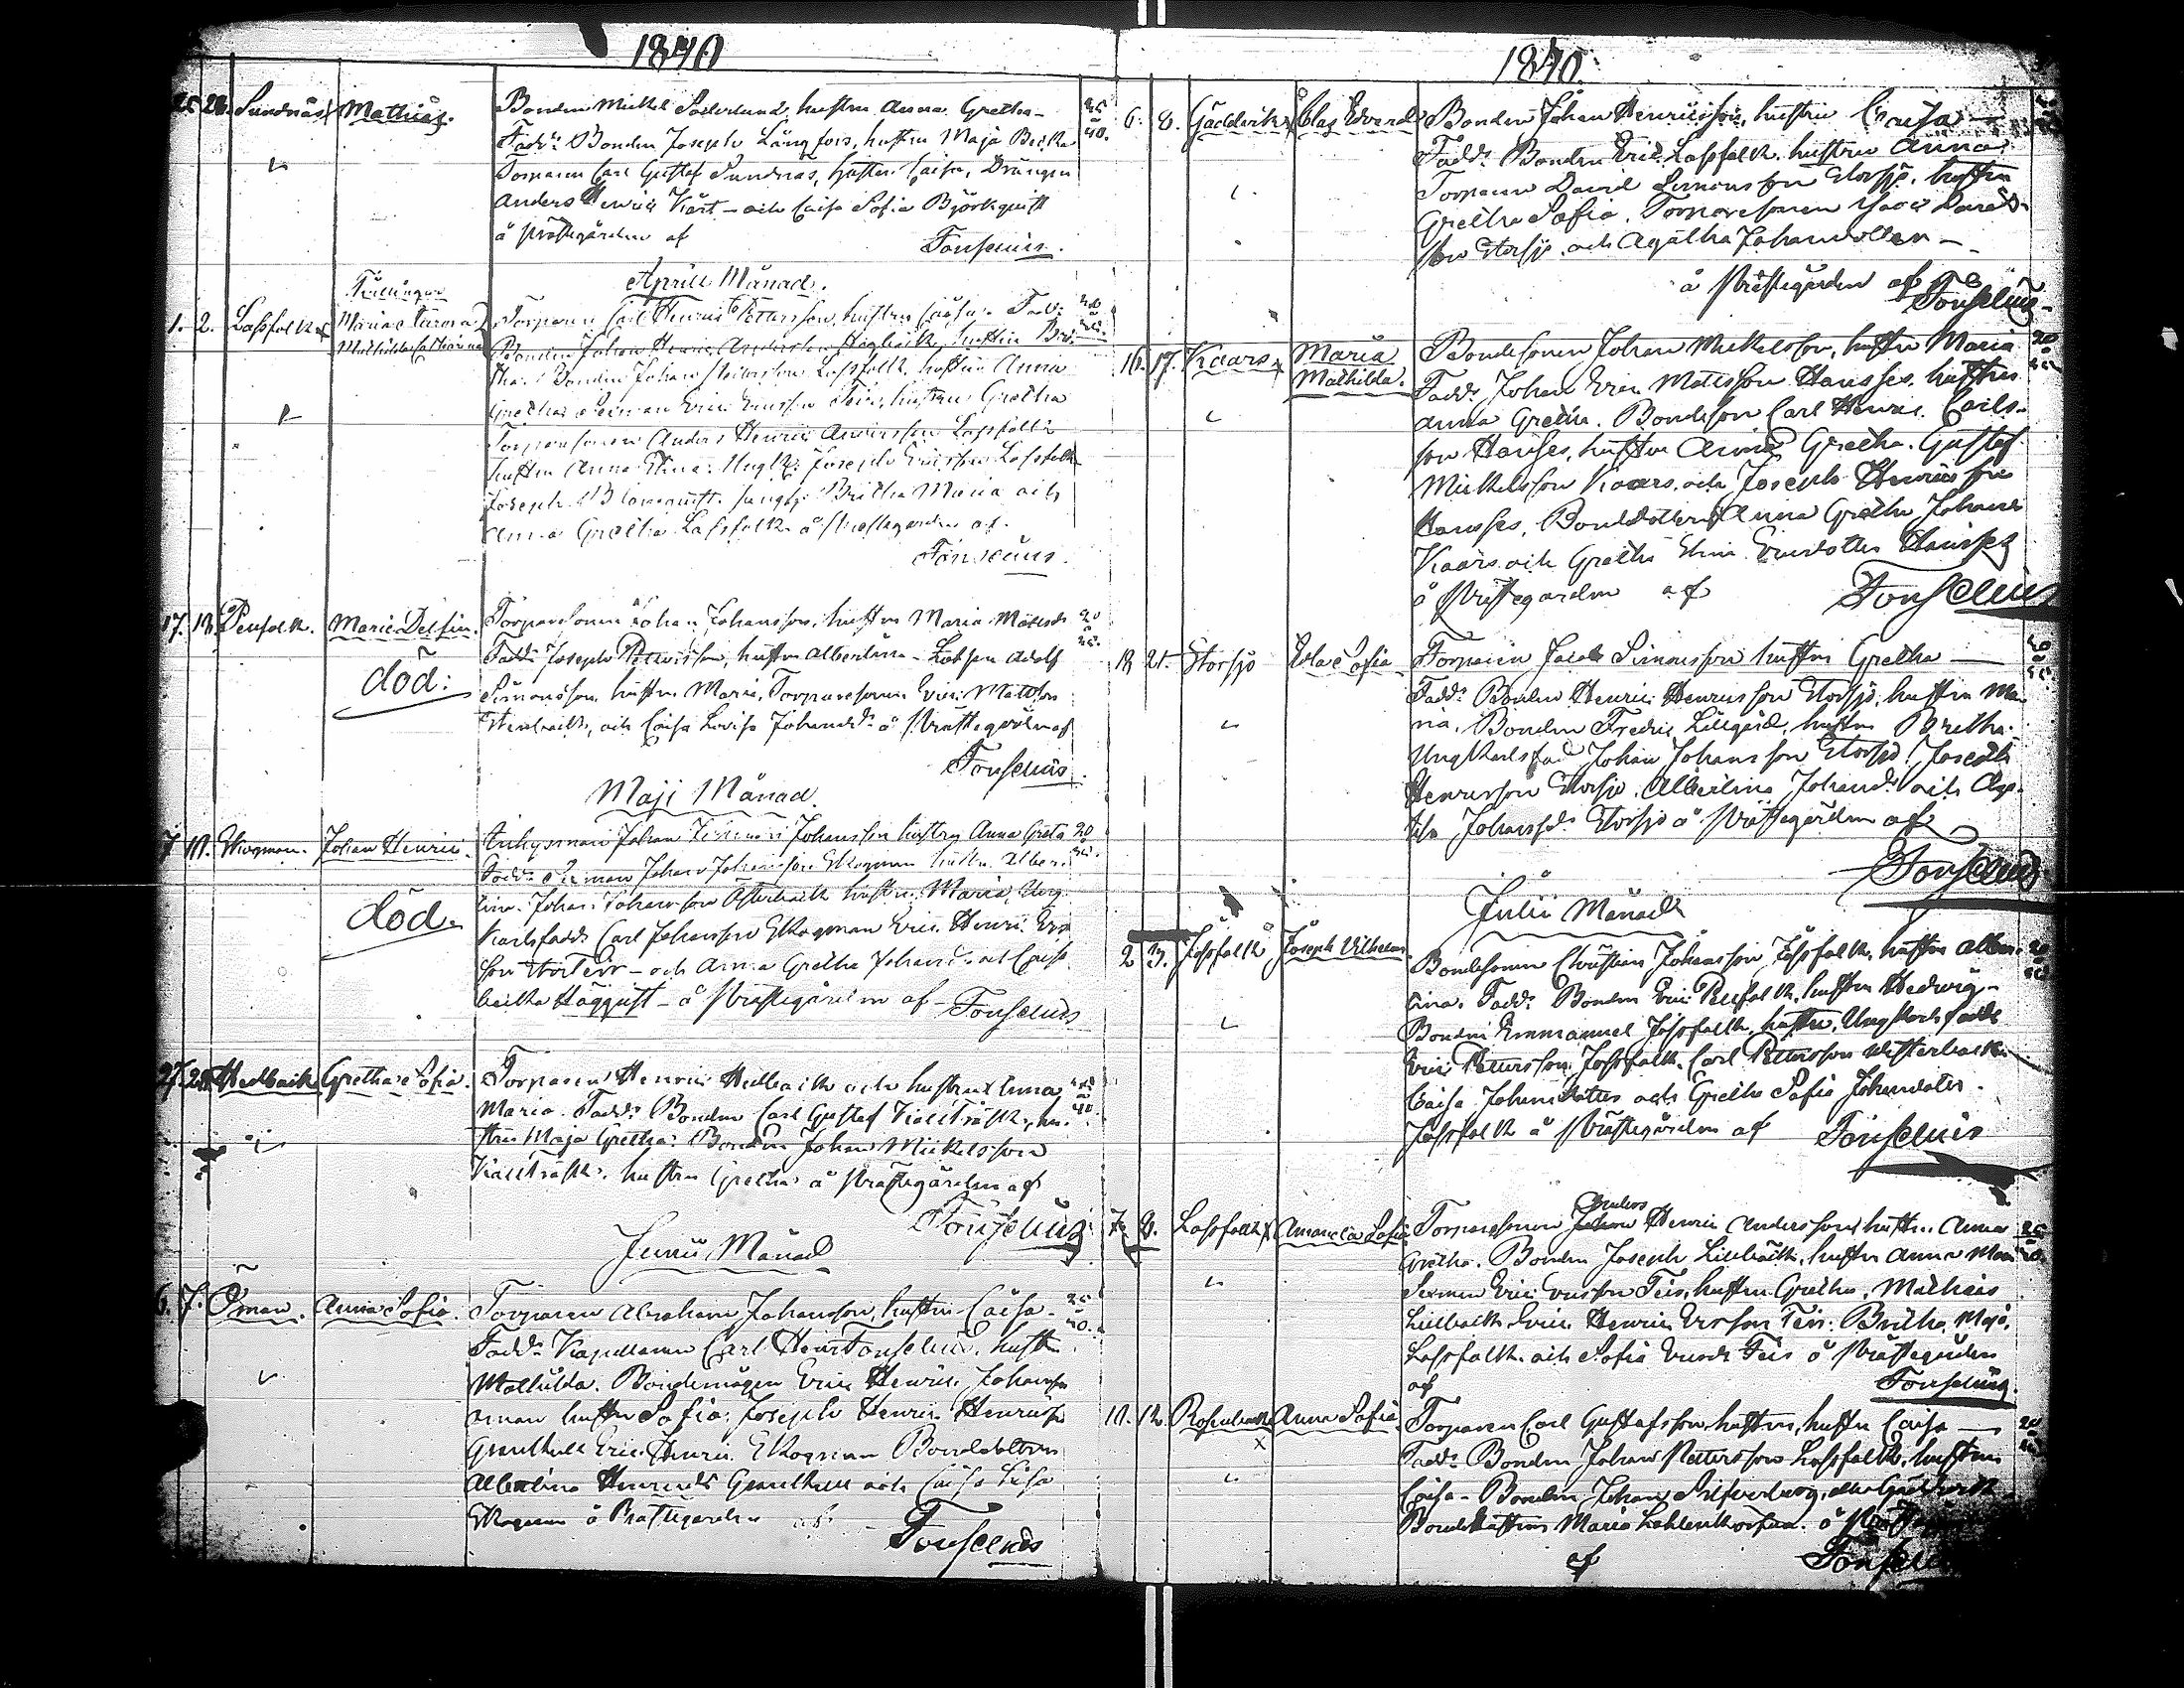 1840
25. 26. Sundnäs Mathias. Bonden Mickel Söderlund, hustru Anna Gretha 35 à 40.
Fadd: Bonden Joseph Långfors, hustru Maja Beckka
Torparen Carl Gustaf Sundnäs, hustru Caisa, Drängen
Anders Henric Kärt - och Caisa Sofia Björkquist
å Prästegården af Fonselius.
Aprill Månad.
Tvillingar
1. 2. Lassfolk Maria Carona Torparen Carl Henric Pettersson, hustru Caisa. Fadd:
Mathilda Catharina Bonden Johan Henric Andersson Högback, hustru Bri-
tha. Bonden Johan Pettersson Lassfolk, hustru Anna
Gretha. Sexman Eric Ersson Teir, hustru Gretha
Torparesonen Anders Henric Andersson Lassfolk
hustru Anna Stina. Ungk: Joseph Ericsson Lassfolk
Joseph Blomquist. Jungf: Britha Maria och
Anna Gretha Lassfolk å Prästegården af
Fonselius.
17. 18. Penfolk. Maria Delfin. Torparesonen Johan Johansson, hustru Maria Matsd: 20 à 25.
död: Fadd: Joseph Pettersson, hustru Albertina - Lotsen Adolf
Simonsson, hustru Maria, Torparesonen Eric Mattsson
och Caisa Lovisa Johansd: å Prästegården af
Fonselius.
Maji Månad.
7. 10. Skogman. Johan Henric. Inhysman Johan Johansson hustru Anna Greta 20 à 25.
död. Fadd: Sexman Johan Johansson Skogman hustru Alber-
tina. Johan Johansson Österback hustru Maria, Ung-
karlsfadd: Carl Johansson Skogman Eric Henric Ers-
son Teir - och Anna Gretha Johansd: och Caisa
Häggqvist - å Prästegården af - Fonselius
27. 28. Hedback Gretha Sofia. Torparen Henric Hedback och hustru Anna
Maria. Fadd: Bonden Carl Gustaf Källträsk, hu-
stru Maja Gretha. Bonden Johan Mickelsson
Källträsk, hustru Gretha å Prästegården af
Fonselius
Junii Månad
6. 7. Öman. Anna Sofia. Torparen Abraham Johansson, hustru Caisa -
Fadd: Kapellanen Carl Henr Fonselius, hustru
Mathilda. Bondemågen Eric Henric Johansson
Öman hustru Sofia. Joseph Henric Henricss
Grankull Eric Henric Skogman Bondedottern
Albertina Henricsd: Grankull och Caisa Lisa
Skogman å Prästegården af
Fonselius
1840.
6. 8. Gäddvik Clas Edvard Bonden Johan Henricsson, hustru Caisa -
Fadd: Bonden Eric Lassfolk, hustru Anna
Torparen David Simonsson Storsjö, hustru
Gretha Sofia. Torparesonen
Storsjö och Agatha Johansdotter -
å Prästegården af
Fonselius
16. 17. Kaars Maria Bondesonen Johan Mickelsson, hustru Maria
Mathilda. Fadd: Johan Eric Mattsson Hansses, hustru
Anna Gretha. Bondeson Carl Henric Carls-
son Hansses, hustru Anna Gretha. Gustaf
Mickelsson Kaars, och Joseph Henricsson
Hansses, Bondedottern Anna Gretha Johansd
Kaars och Gretha Stina Ericsdotter Hansses
å Prästegården af Fonselius
18 21. Storsjö Eva Sofia Torparen Jacob Simonsson hustru Gretha —
Fadd: Bonden Henric Henricsson Storsjö, hustru Man-
na, Bonden Fredric Lillgård, hustru Bretha.
Ungkarlsfad Johan Johansson Storsjö, Joseph
Henricsson Storsjö. Albertina Johansd: och Aga-
tha Johansd: Storsjö å Prästegården af
Fonselius
Julii Månad
2 3. Jossfolk Joseph Vilhelm Bondesonen Christian Johansson Jossfolk, hustru Alber-
tina. Fadd: Bonden Eric Penfolk, hustru Hedvig -
Bonden Emmanuel Jossfolk, hustru, Ungkarlsfadd:
Eric Pettersson Jossfolk, Carl Pettersson Westerback
Caisa Johansdotter och Gretha Sofia Johansdoter
Jossfolk å Prästegården af Fonselius
7. 8. Lassfolk Amanda Sofia Torparesonen Anders Henric Andersson hustru Anna 25
Gretha. Bonden Joseph Lillback, hustru Anna Maria
Sexman Eric Ersson Teir, hustru Gretha, Mathias
Lillback Eric Henric Ersson Teir. Britha Maja
Lassfolk och Sofia Ersd: Teir å Prästegården
af Fonselius
10. 12. Rosenback Anna Sofia Torparen Carl Gustafsson hustru, hustru Caisa — 20
Fadd: Bonden Johan Pettersson Lassfolk, hustru
Caisa - Bonden Johan Silfverberg, Gäddvik
Bondehustrun Maria å
af Fonselius